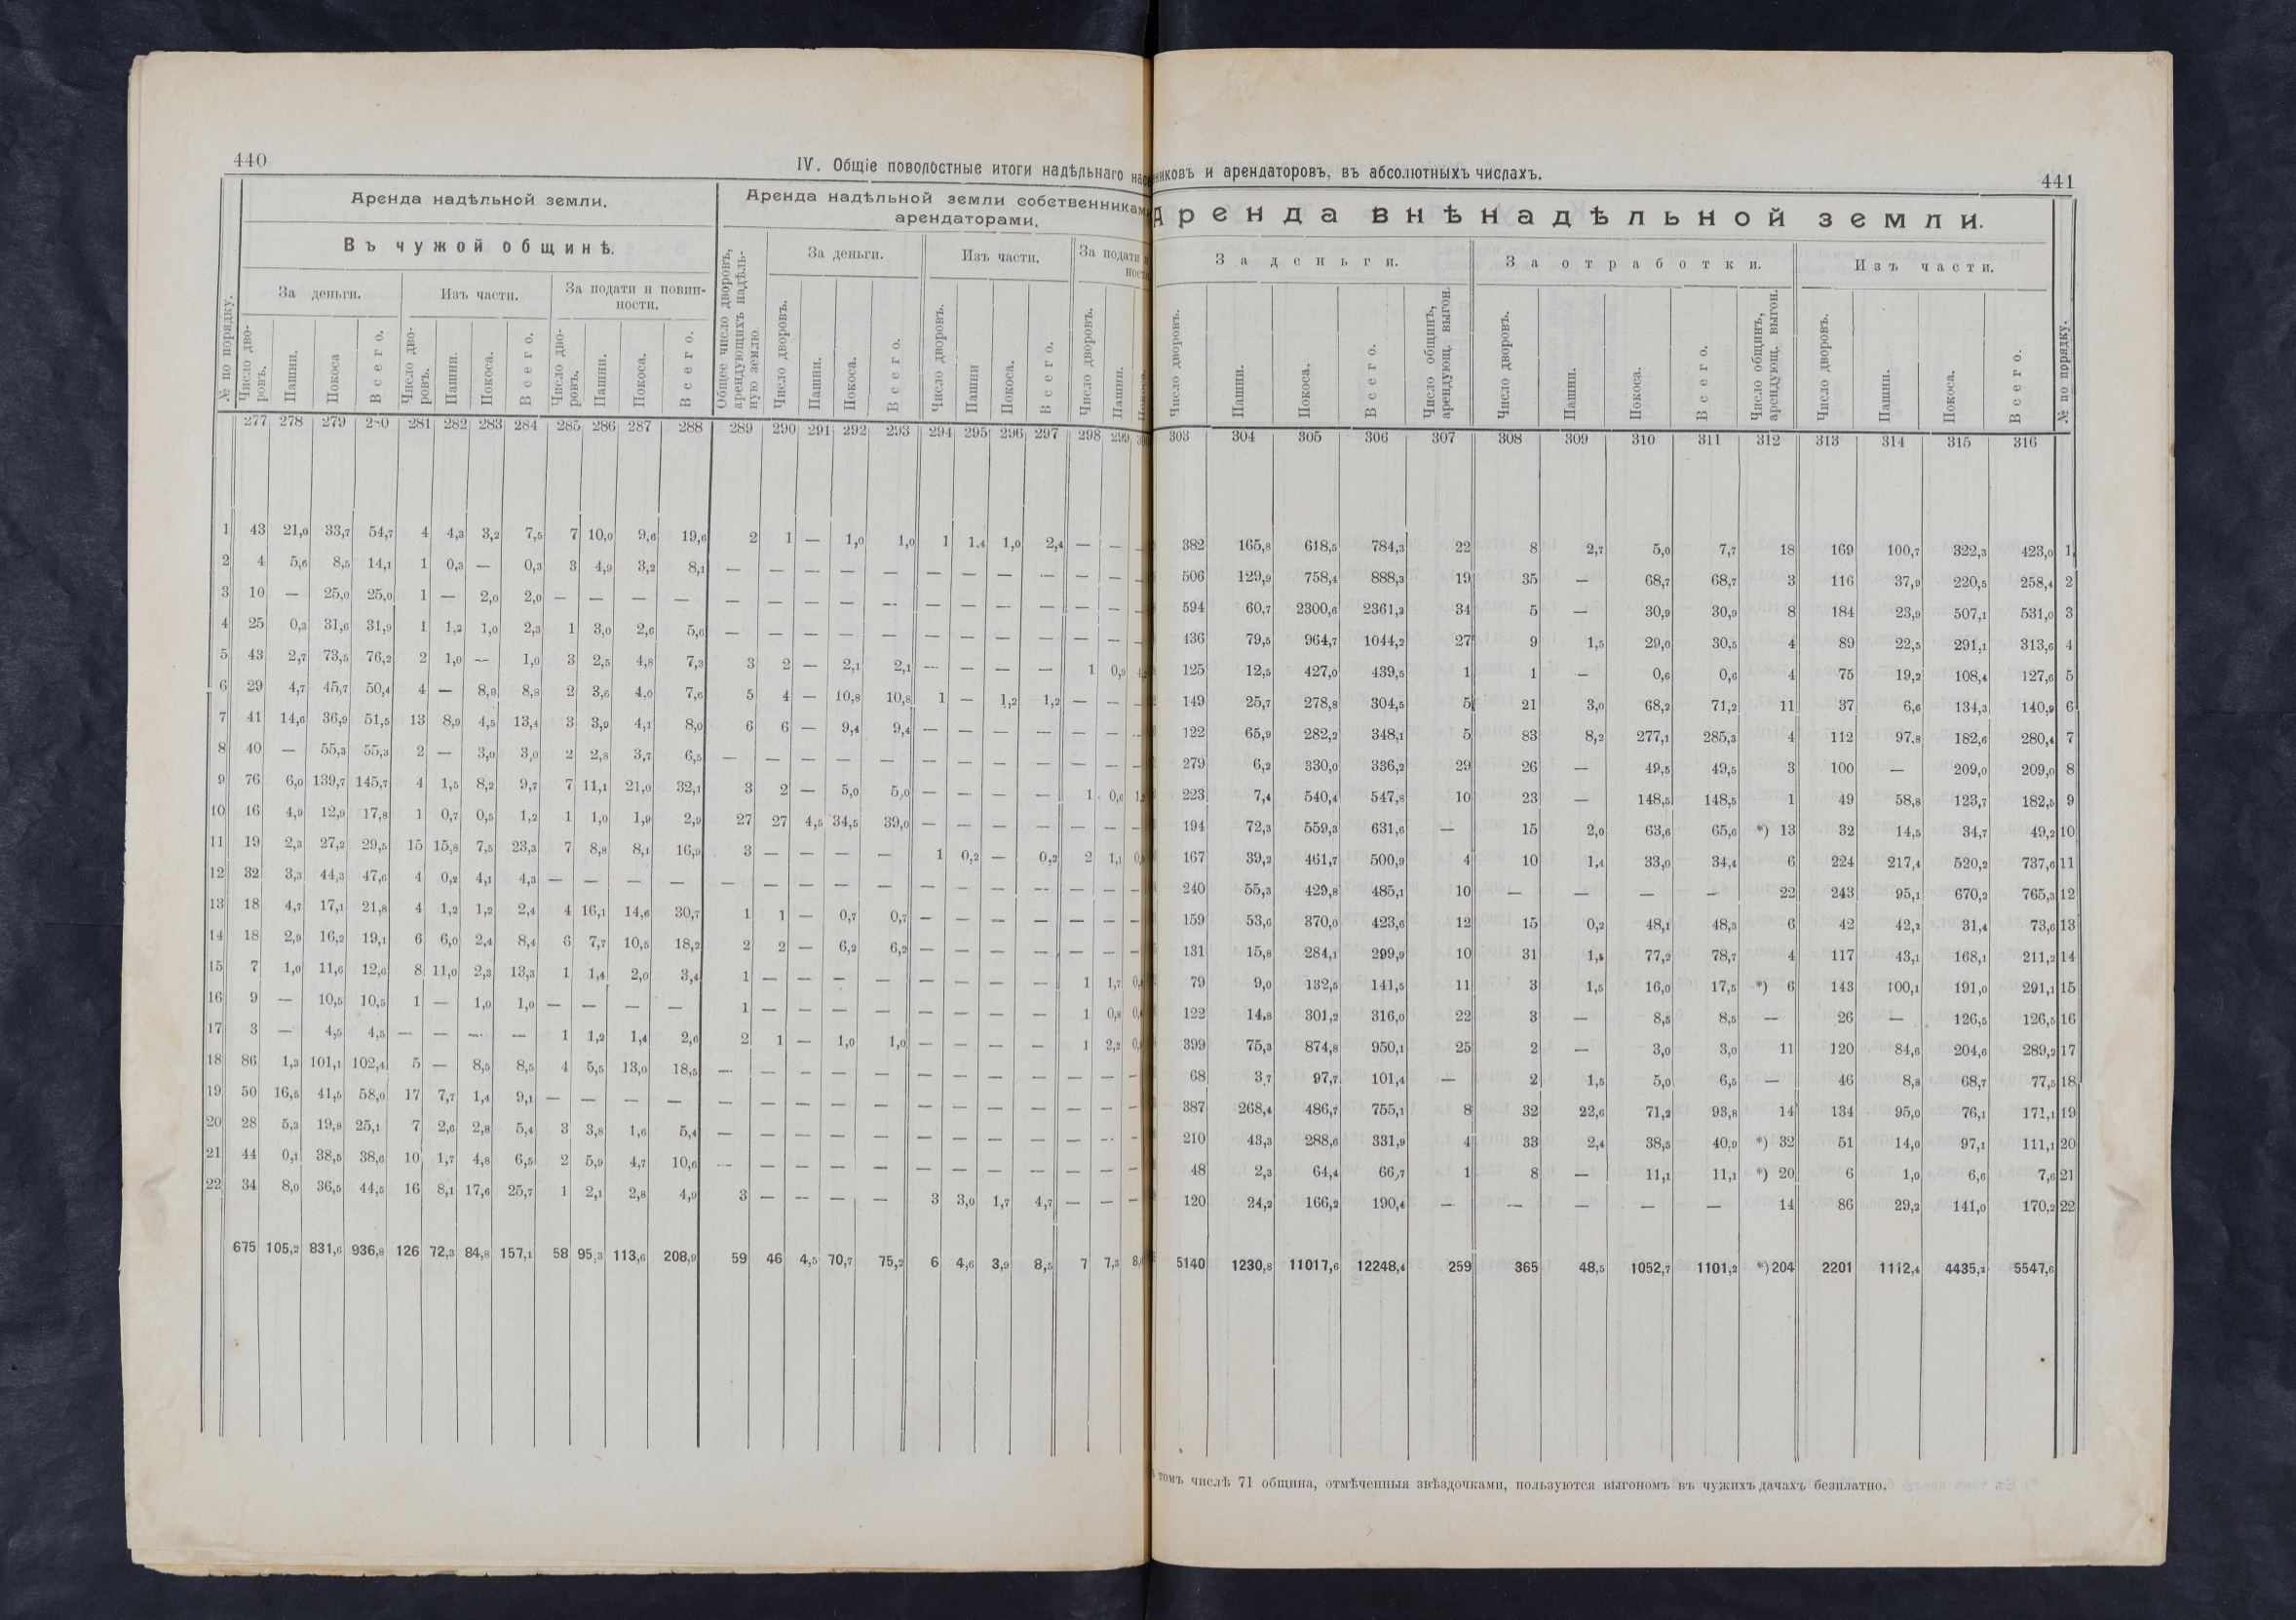 440
IV. Общіе поволостные итоги надѣльнаго
Аренда надѣльной земли.
Аренда надѣльной земли собственниками
арендаторами.
Въ чужой общинѣ.
За деньги.
Изъ части.
За подати
За деньги.
Изъ части.
За подати и повин-
ности.
№ по порядку.
Число дво-
ровъ.
Пашни.
Покоса
Всего.
Число дво-
ровъ.
Пашни.
Покоса.
Всего.
Число дво-
ровъ.
Пашни.
Покоса.
Всего.
Общее число дворовъ,
арендующихъ надѣль-
ную землю
Число дворовъ.
Пашни.
Покоса.
Всего.
Число дворовъ.
Пашни
Покоса.
Всего.
Число дворовъ.
Пашни.
277 278 279 280 281 282 283 284 285 286 287 288 289 290 291 292 293 294 295 296 297 298 299
1 43 21,0 33,7 54,7 4 4,3 3,2 7,5 7 10,0 9,6 19,6 2 1 — 1,0 1,0 1 1,4 1,0 2,4 — — —
2 4 5,6 8,5 14,1 1 0,3 — 0,3 3 4,9 3,2 8,1 — — — — — — — — — — — —
3 10 — 25,0 25,0 1 — 2,0 2,0 — — — — — — — — — — — — — — — —
4 25 0,3 31,6 31,9 1 1,2 1,0 2,3 1 3,0 2,6 5,6 — — — — — — — — — — — —
5 43 2,7 73,5 76,2 2 1,0 — 1,0 3 2,5 4,8 7,3 3 2 — 2,1 2,1 — — — — 1 0,9
6 29 4,7 45,7 50,4 4 — 8,8 8,8 2 3,6 4,0 7,6 5 4 — 10,8 10,8 1 — 1,2 1,2 — — —
7 41 14,6 36,9 51,5 13 8,9 4,5 13,4 3 3,9 4,1 8,0 6 6 — 9,4 9,4 — — — — — — —
8 40 — 55,3 55,3 2 — 3,0 3,0 2 2,8 3,7 6,5 — — — — — — — — — — — —
9 76 6,0 139,7 145,7 4 1,5 8,2 9,7 7 11,1 21,0 32,1 3 2 — 5,0 5,0 — — — — 1 0,6
10 16 4,9 12,9 17,8 1 0,7 0,5 1,2 1 1,0 1,9 2,9 27 27 4,5 34,5 39,0 — — — — — — —
11 19 2,3 27,2 29,5 15 15,8 7,5 23,3 7 8,8 8,1 16,9 3 — — — — 1 0,2 — 0,2 2 1,1
12 32 3,3 44,3 47,6 4 0,2 4,1 4,3 — — — — — — — — — — — — — — — —
13 18 4,7 17,1 21,8 4 1,2 1,2 2,4 4 16,1 14,6 30,7 1 1 — 0,7 0,7 — — — — — — —
14 18 2,9 16,2 19,1 6 6,0 2,4 8,4 6 7,7 10,5 18,2 2 2 — 6,2 6,2 — — — — — — —
15 7 1,0 11,6 12,6 8 11,0 2,3 13,3 1 1,4 2,0 3,4 1 — — — — — — — — 1 1,7
16 9 — 10,5 10,5 1 — 1,0 1,0 — — — — 1 — — — — — — — — 1 0,8
17 3 — 4,5 4,5 — — — — 1 1,2 1,4 2,6 2 1 — 1,0 1,0 — — — — 1 2,2
18 86 1,3 101,1 102,4 5 — 8,5 8,5 4 5,5 13,0 18,5 — — — — — — — — — — — —
19 50 16,5 41,5 58,0 17 7,7 1,4 9,1 — — — — — — — — — — — — — — — —
20 28 5,3 19,8 25,1 7 2,6 2,8 5,4 3 3,8 1,6 5,4 — — — — — — — — — — — —
21 44 0,1 38,5 38,6 10 1,7 4,8 6,5 2 5,9 4,7 10,6 — — — — — — — — — — — —
22 34 8,0 36,5 44,5 16 8,1 17,6 25,7 1 2,1 2,8 4,9 3 — — — — 3 3,0 1,7 4,7 — — —
675 105,2 831,6 936,8 126 72,3 84,8 157,1 58 95,3 113,6 208,9 59 46 4,5 70,7 75,2 6 4,6 3,9 8,5 7 7,3
никовъ и арендаторовъ, въ абсолютныхъ числахъ.
441
Аренда внѣнадѣльной земли.
За деньги.
За отработки.
Изъ части.
Число дворовъ.
Пашни.
Покоса.
Всего.
Число общинъ,
арендующ. выгон.
Число дворовъ.
Пашни.
Покоса.
Всего.
Число общинъ,
арендующ. выгон.
Число дворовъ.
Пашни.
Покоса.
Всего.
№ по прядку.
303 304 305 306 307 308 309 310 311 312 313 314 315 316
382 165,8 618,5 784,3 22 8 2,7 5,0 7,7 18 169 100,7 322,3 423,0 1
506 129,9 758,4 888,3 19 35 — 68,7 68,7 3 116 37,9 220,5 258,4 2
594 60,7 2300,6 2361,3 34 5 — 30,9 30,9 8 184 23,9 507,1 531,0 3
436 79,5 964,7 1044,2 27 9 1,5 29,0 30,5 4 89 22,5 291,1 313,6 4
125 12,5 427,0 439,5 1 1 — 0,6 0,6 4 75 19,2 108,4 127,6 5
149 25,7 278,8 304,5 5 21 3,0 68,2 71,2 11 37 6,6 134,3 140,9 6
122 65,9 282,2 348,1 5 83 8,2 277,1 285,3 4 112 97,8 182,6 280,4 7
279 6,2 330,0 336,2 29 26 — 49,5 49,5 3 100 — 209,0 209,0 8
223 7,4 540,4 547,8 10 23 — 148,5 148,5 1 49 58,8 123,7 182,5 9
194 72,3 559,3 631,6 — 15 2,0 63,6 65,6 *) 13 32 14,5 34,7 49,2 10
167 39,2 461,7 500,9 4 10 1,4 33,0 34,4 6 224 217,4 520,2 737,6 11
240 55,3 429,8 485,1 10 — — — — 22 243 95,1 670,2 765,3 12
159 53,6 370,0 423,6 12 15 0,2 48,1 48,3 6 42 42,2 31,4 73,6 13
131 15,8 284,1 299,9 10 31 1,5 77,2 78,7 4 117 43,1 168,1 211,2 14
79 9,0 132,5 141,5 11 3 1,5 16,0 17,5 *) 6 143 100,1 191,0 291,1 15
122 14,8 301,2 316,0 22 3 — 8,5 8,5 — 26 — 126,5 126,5 16
399 75,3 874,8 950,1 25 2 — 3,0 3,0 11 120 84,6 204,6 289,2 17
68 3,7 97,7 101,4 — 2 1,5 5,0 6,5 — 46 8,8 68,7 77,5 18
387 268,4 486,7 755,1 8 32 22,6 71,2 93,8 14 134 95,0 76,1 171,1 19
210 43,3 288,6 331,9 4 33 2,4 38,5 40,9 *) 32 51 14,0 97,1 111,1 20
48 2,3 64,4 66,7 1 8 — 11,1 11,1 *) 20 6 1,0 6,6 7,6 21
120 24,2 166,2 190,4 — — — — — 14 86 29,2 141,0 170,2 22
5140 1230,8 11017,6 12248,4 259 365 48,5 1052,7 1101,2 *) 204 2201 1112,4 4435,2 5547,6
томъ числѣ 71 община, отмѣченныя звѣздочками, пользуются выгономъ въ чужихъ дачахъ безплатно.